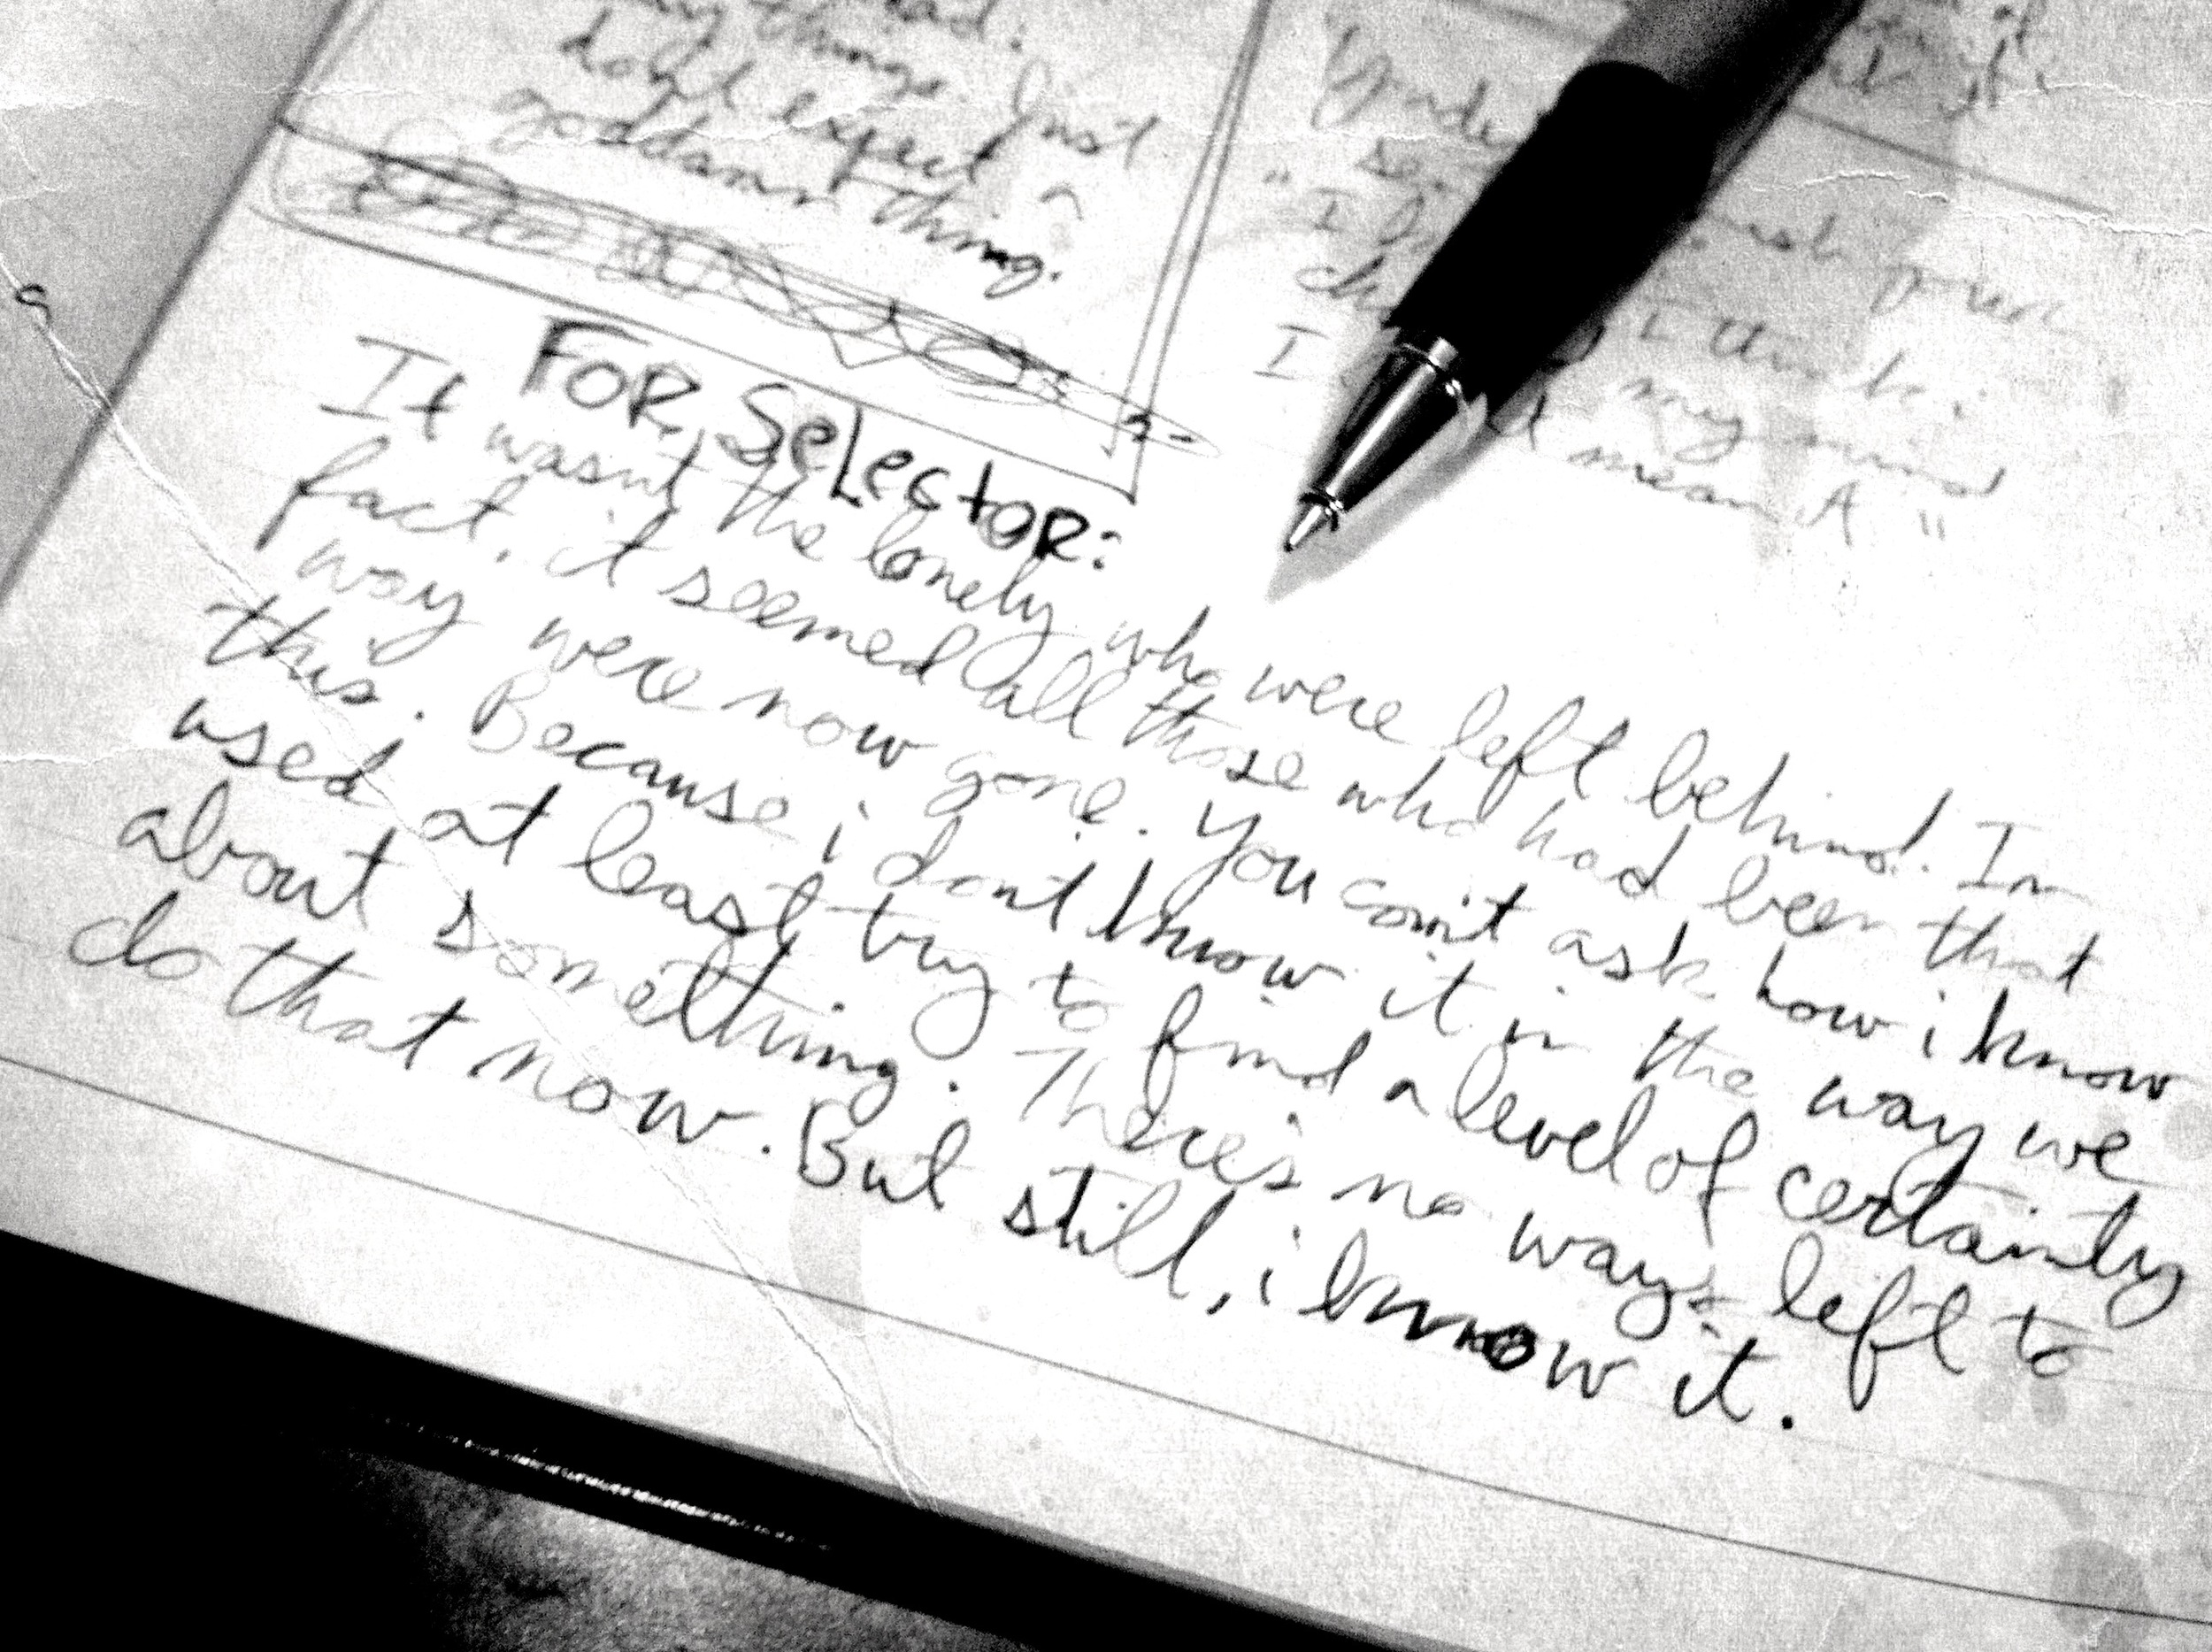 things just
don't expect a
goddamn thing.
"I
I think:
my mind
mean A "
FOR SeLectoR:
It wasn't the lonely who were left behind. In
fact, it seemed all those who had been that
way were now gone. You can't ask how i know
this. Because i don't know it in the way we
used at least try to find a level of certainty
about something. There's no ways left to
do that now. But still, i know it.